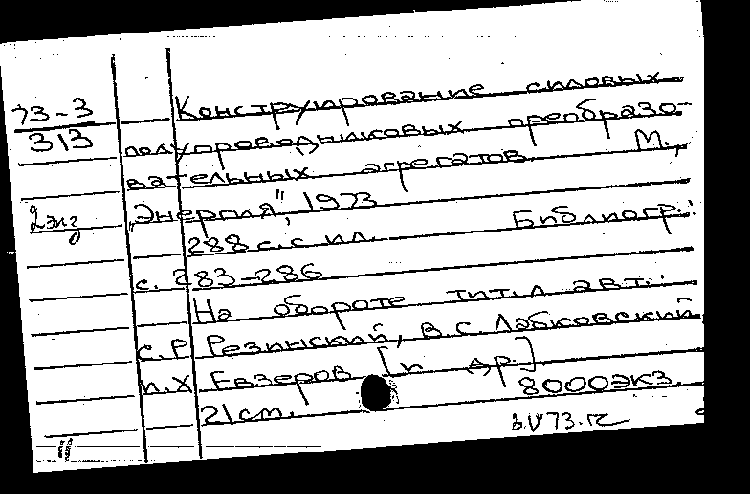 73-3
313
2 экз
Конструирование силовых
полупроводниковых преобразо-
вательных агрегатов М.,
„Энергия", 1973
288 с. с ил. Библиогр.:
с. 283-286
На обороте тит. л авт.:
С.Р Резинский, В.С. Лабковский,
И.Х Евзеров [и др.]
21 см. 8000 экз.